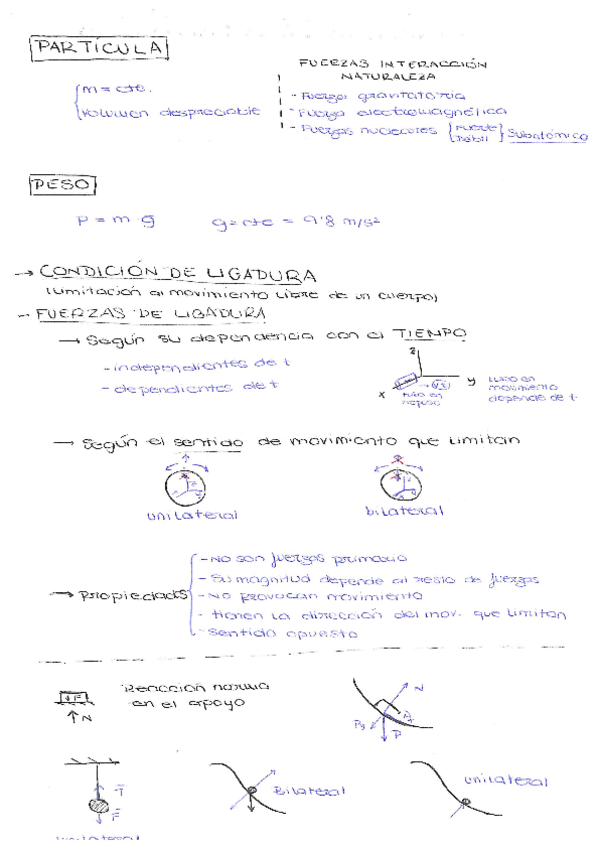 PARTÍCULA
FUERZAS INTERACCIÓN
NATURALEZA
m = cte.
volumen despreciable
- Fuerza gravitatoria
- Fuerza electromagnética
- Fuerzas nucleares { Fuerte
débil } Subatómico
PESO
P = m · g
g = cte = 9'8 m/s²
→ CONDICIÓN DE LIGADURA
(limitación al movimiento libre de un cuerpo)
→ FUERZAS DE LIGADURA
→ Según su dependencia con el TIEMPO
- independientes de t
- dependientes de t
z
x
y
tubo en
reposo
tubo en
movimiento
depende de t
→ Según el sentido de movimiento que limitan
unilateral
bilateral
→ Propiedades
- No son fuerzas primario
- Su magnitud depende al resto de fuerzas
- No provocan movimiento
- tienen la dirección del mov. que limitan
- Sentido opuesto
↓F
↑N
Reacción norma
en el apoyo
N
P
T
F
Bilateral
unilateral
unilateral